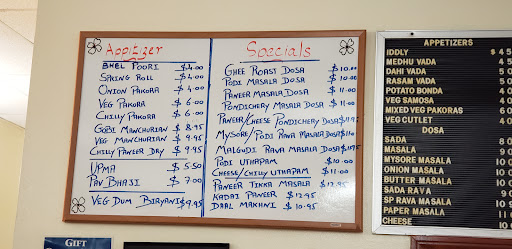 Appetizer
BHEL POORI $4.00
SPRING ROLL $4.00
ONION PAKORA $4.00
VEG PAKORA $6.00
CHILLY PAKORA $6.00
GOBI MANCHURIAN $8.95
VEG MANCHURIAN $9.95
CHILLY PANEER DRY $9.95
UPMA $5.50
PAV BHAJI $7.00
VEG DUM BIRYANI $9.95
Specials
GHEE ROAST DOSA $10.00
PODI MASALA DOSA $10.00
PANEER MASALA DOSA $11.00
PONDICHERY MASALA DOSA $11.00
PANEER/CHEESE PONDICHERY DOSA $11.95
MYSORE/PODI RAVA MASALA DOSA
MALGUDI RAVA MASALA DOSA $11.95
PODI UTHAPAM $10.00
CHEESE/CHILLY UTHAPAM $11.00
PANEER TIKKA MASALA $12.95
KADAI PANEER $12.95
DAAL MAKHNI $10.95
APPETIZERS
IDDLY $4
MEDHU VADA
DAHI VADA
RASAM VADA
POTATO BONDA
VEG SAMOSA
MIXED VEG PAKORAS
VEG CUTLET
DOSA
SADA
MASALA
MYSORE MASALA
ONION MASALA
BUTTER MASALA
SADA RAVA
SP RAVA MASALA
PAPER MASALA
CHEESE
GIFT